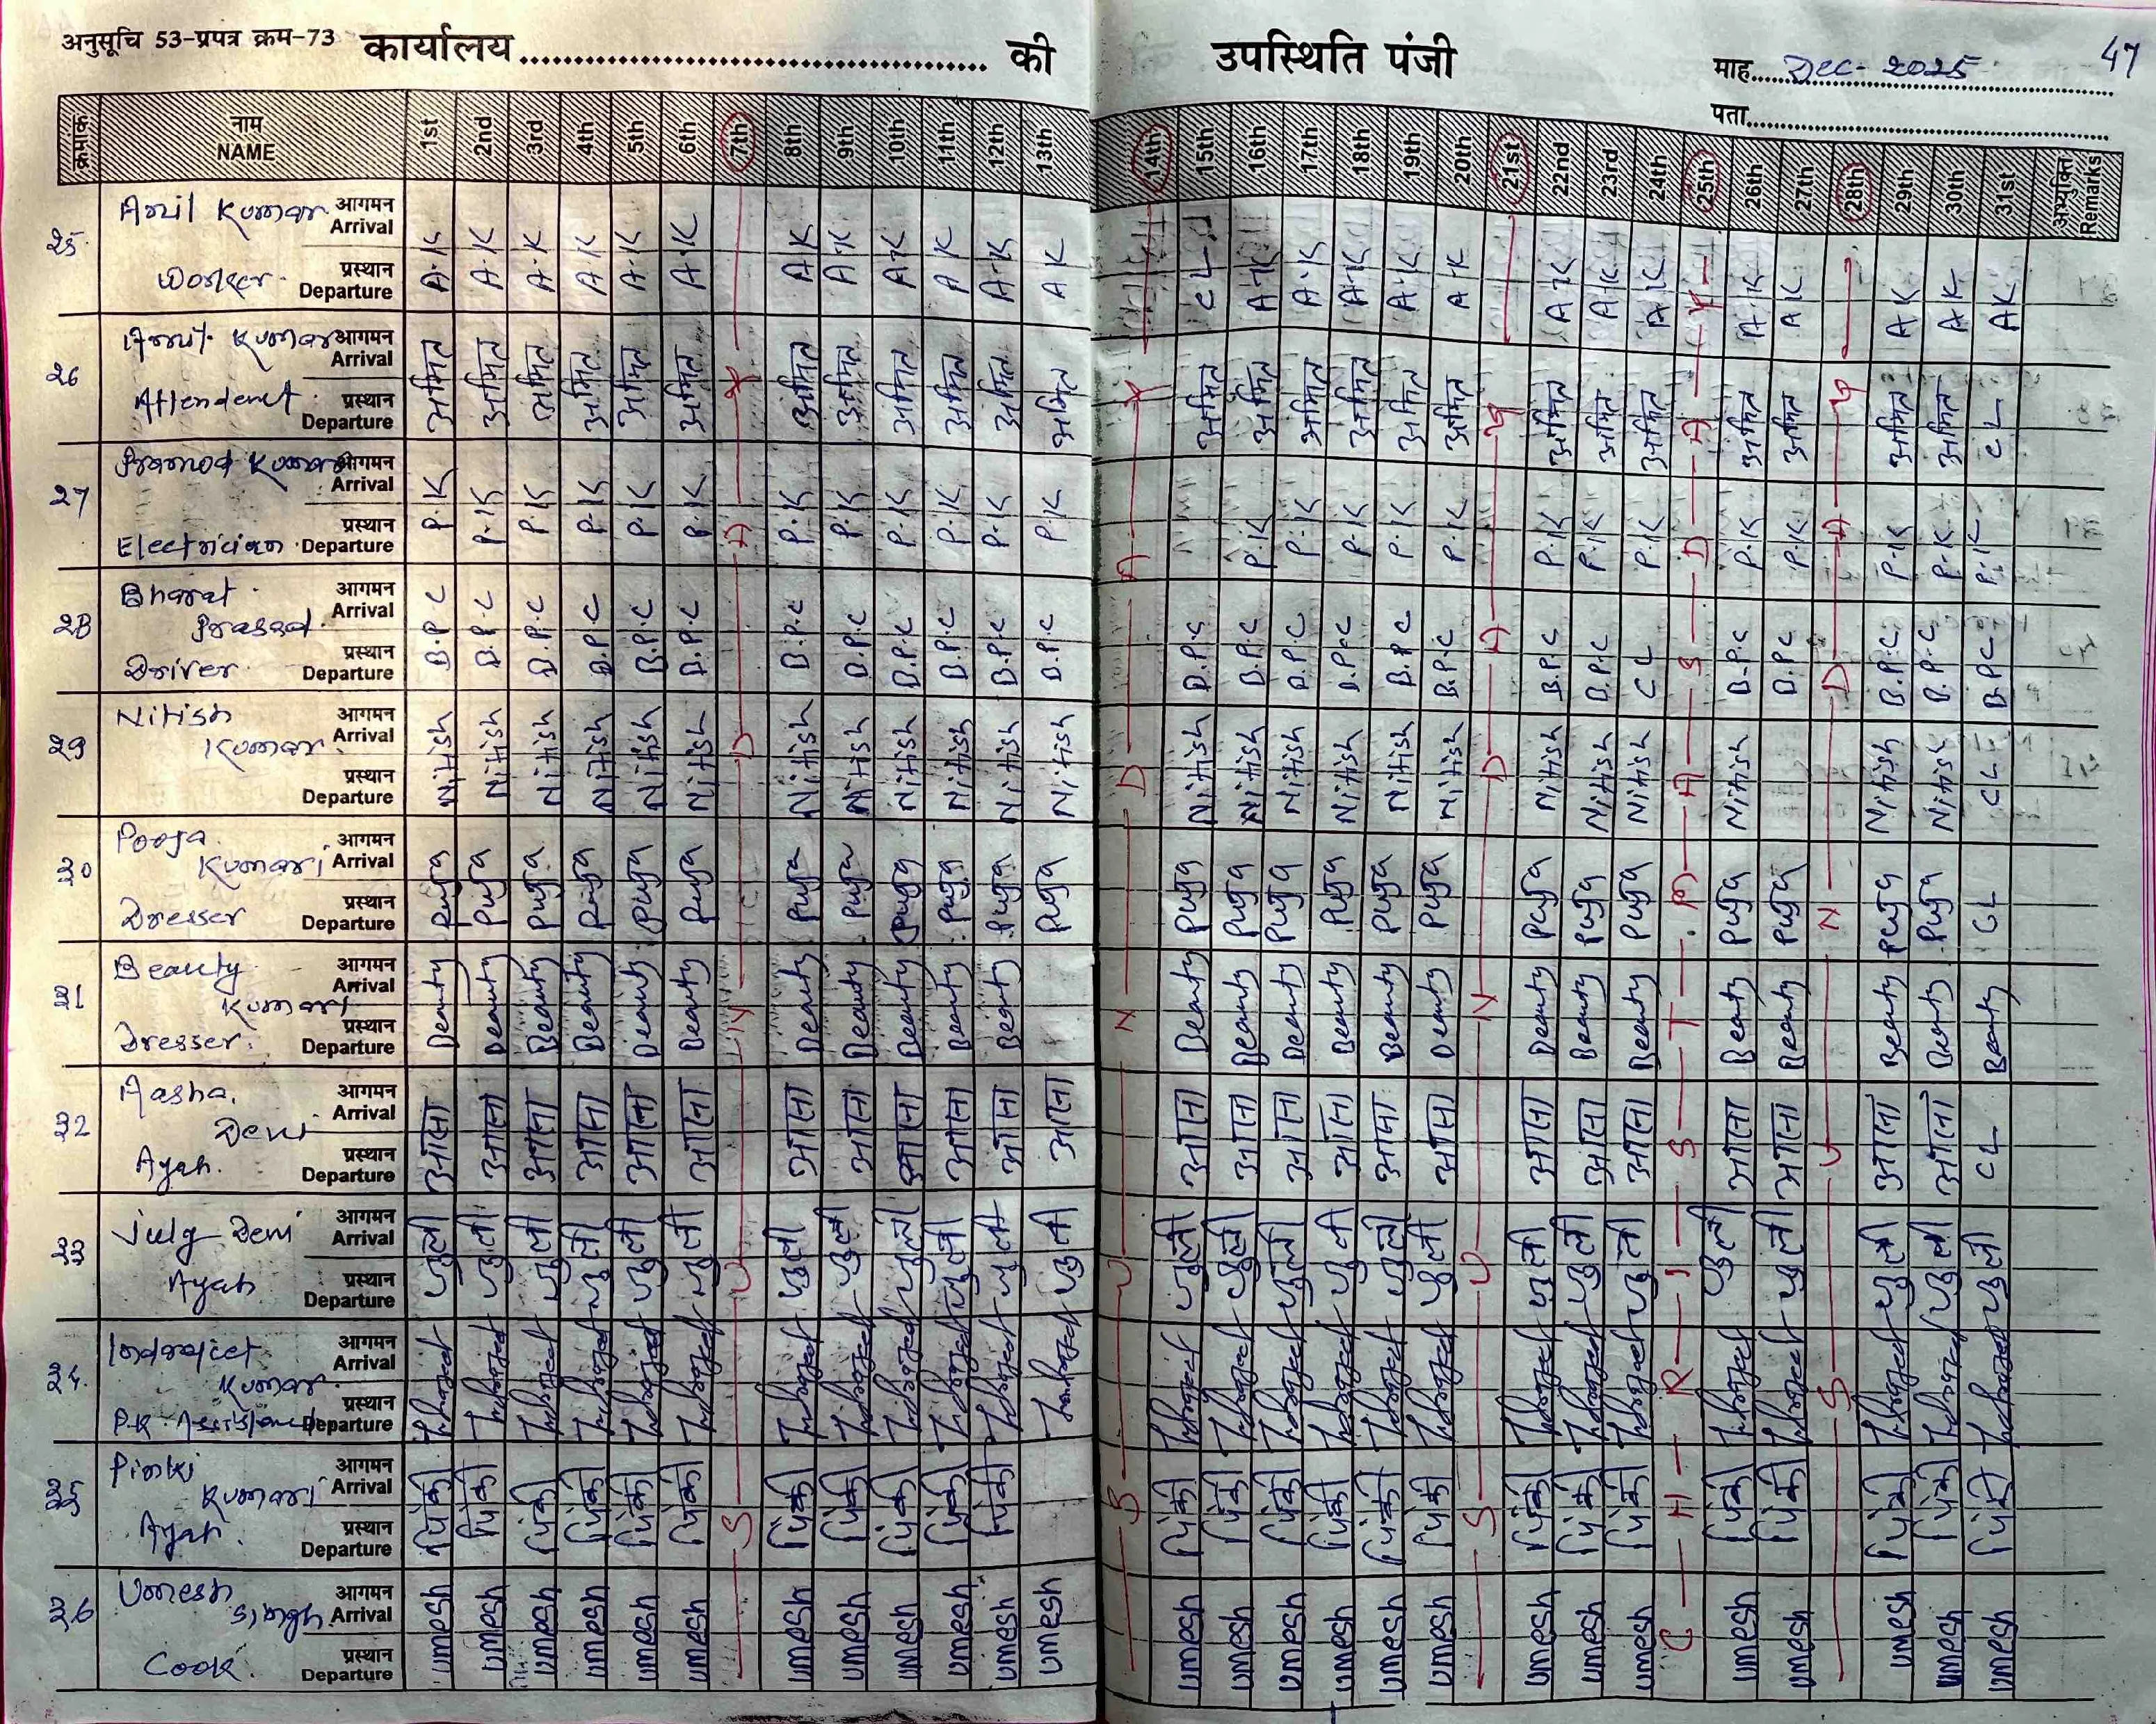 अनुसूचि 53-प्रपत्र क्रम-73 कार्यालय........................................ की उपस्थिति पंजी माह...... Dec- 2025 47
पता........................................
क्रमांक नाम NAME 1st 2nd 3rd 4th 5th 6th 7th 8th 9th 10th 11th 12th 13th 14th 15th 16th 17th 18th 19th 20th 21st 22nd 23rd 24th 25th 26th 27th 28th 29th 30th 31st अभ्युक्ति Remarks
25 Anil Kumar Worker आगमन Arrival प्रस्थान Departure A.K A.K A.K A.K A.K A.K A.K A.K A.K A.K A.K A.K CL A.K A.K A.K A.K A.K A.K A.K A.K A.K A.K A.K A.K A.K
26 Amit Kumar Attendent आगमन Arrival प्रस्थान Departure अमित अमित अमित अमित अमित अमित अमित अमित अमित अमित अमित अमित अमित अमित अमित अमित अमित अमित अमित अमित अमित अमित अमित अमित अमित CL
27 Pramod Kumar Electrician आगमन Arrival प्रस्थान Departure P.K P.K P.K P.K P.K P.K P.K P.K P.K P.K P.K P.K P.K P.K P.K P.K P.K P.K P.K P.K P.K P.K P.K P.K P.K
28 Bharat Prasad Driver आगमन Arrival प्रस्थान Departure B.P.C B.P.C B.P.C B.P.C B.P.C B.P.C B.P.C B.P.C B.P.C B.P.C B.P.C B.P.C B.P.C B.P.C B.P.C B.P.C B.P.C B.P.C B.P.C B.P.C CL B.P.C B.P.C B.P.C B.P.C B.P.C
29 Nitish Kumar आगमन Arrival प्रस्थान Departure Nitish Nitish Nitish Nitish Nitish Nitish Nitish Nitish Nitish Nitish Nitish Nitish Nitish Nitish Nitish Nitish Nitish Nitish Nitish Nitish Nitish Nitish Nitish Nitish CL
30 Pooja Kumari Dresser आगमन Arrival प्रस्थान Departure Puja Puja Puja Puja Puja Puja Puja Puja Puja Puja Puja Puja Puja Puja Puja Puja Puja Puja Puja Puja Puja Puja Puja Puja Puja CL
31 Beauty Kumari Dresser आगमन Arrival प्रस्थान Departure Beauty Beauty Beauty Beauty Beauty Beauty Beauty Beauty Beauty Beauty Beauty Beauty Beauty Beauty Beauty Beauty Beauty Beauty Beauty Beauty Beauty Beauty Beauty Beauty Beauty
32 Aasha Devi Ayah आगमन Arrival प्रस्थान Departure CL
33 July Devi Ayah आगमन Arrival प्रस्थान Departure
34 Indrajeet Kumar आगमन Arrival प्रस्थान Departure
35 Pinki Kumari Ayah आगमन Arrival प्रस्थान Departure पिंकी पिंकी पिंकी पिंकी पिंकी पिंकी पिंकी पिंकी पिंकी पिंकी पिंकी पिंकी पिंकी पिंकी पिंकी पिंकी पिंकी पिंकी पिंकी पिंकी पिंकी पिंकी पिंकी पिंकी पिंकी
36 Umesh Singh Cook आगमन Arrival प्रस्थान Departure umesh umesh umesh umesh umesh umesh umesh umesh umesh umesh umesh umesh umesh umesh umesh umesh umesh umesh umesh umesh umesh umesh umesh umesh umesh umesh
SUNDAY
SUNDAY
SUNDAY
CHRISTMAS DAY
SUNDAY